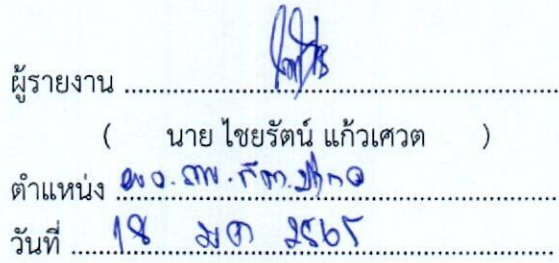 ผู้รายงาน
( นาย ไชยรัตน์ แก้วเศวต )
ตำแหน่ง
วันที่ 18 มค 2565